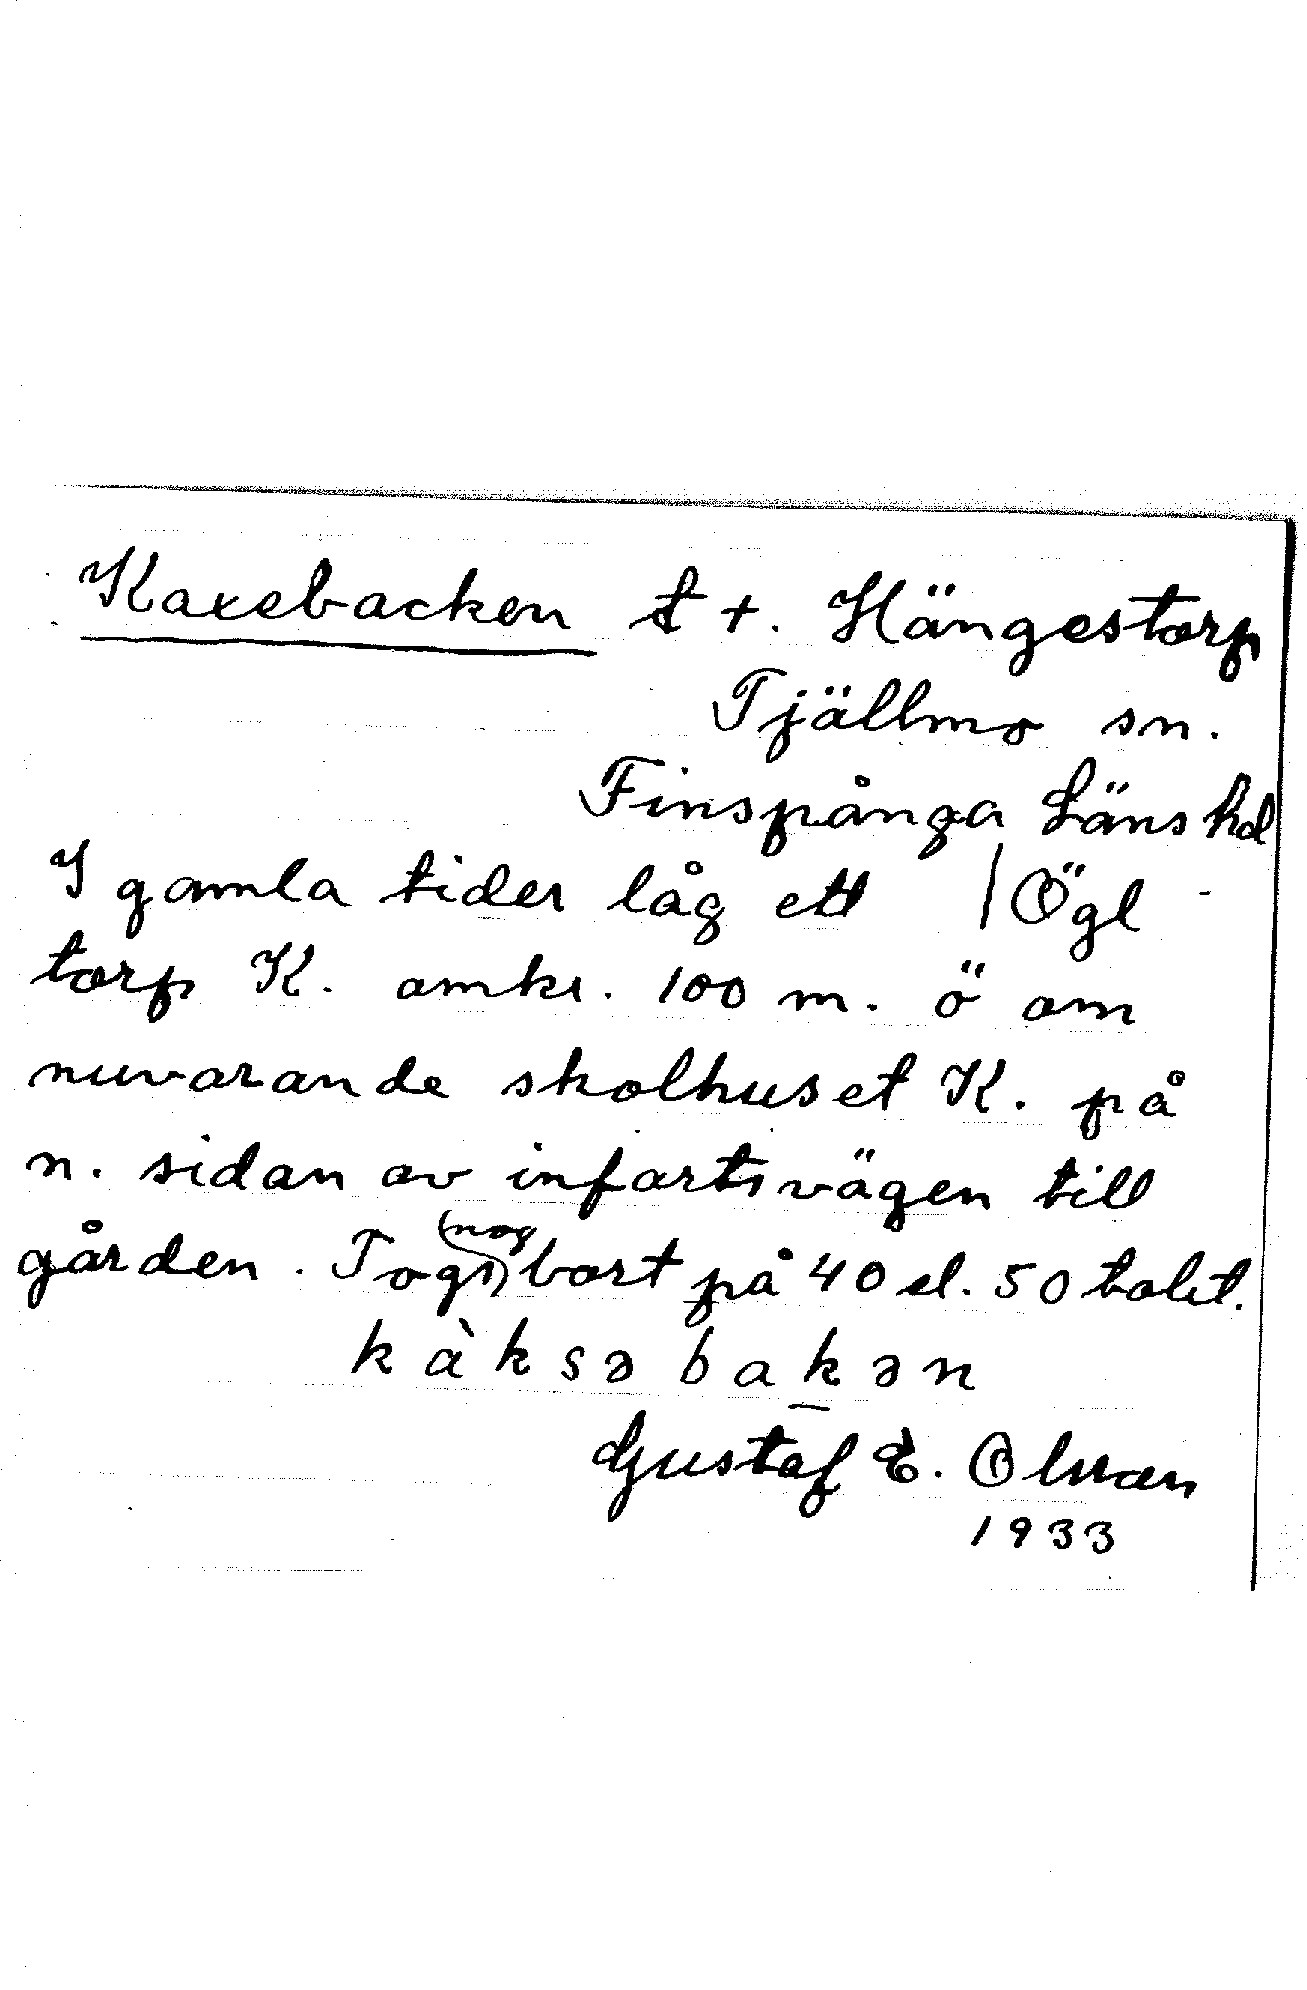 Kaxebacken t +. Hängestorp
Tjällmo sn.
Finspånga Läns hd
I gamla tider låg ett / Ögl -
torp K. omkr. 100 m. ö om
nuvarande skolhuset K. på
n. sidan av infartsvägen till
gården. Togs (nog) bort på 40 el. 50 talet.
kàksəbakən
Gustaf E. Olsson
1933